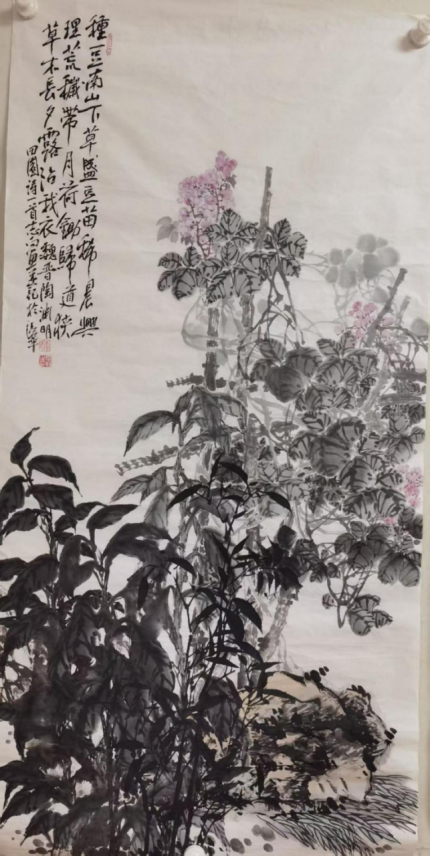 種豆南山下草盛豆苗稀晨興
理荒穢帶月荷鋤歸道狹
草木長夕露沾我衣魏晉陶淵明
田園詩一首